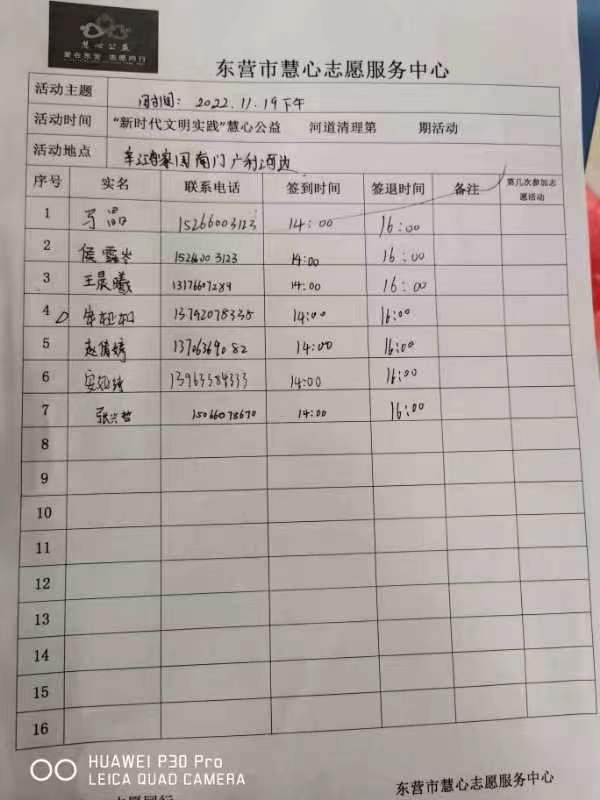 慧心公益
爱在东营 志愿同行
东营市慧心志愿服务中心
活动主题 时间: 2022.11.19下午
活动时间 “新时代文明实践”慧心公益 河道清理第 期活动
活动地点 南门广利河边
序号 实名 联系电话 签到时间 签退时间 备注 第几次参加志愿活动
1 马晶 15266003123 14:00 16:00
2 侯露 1526600 3123 14:00 16:00
3 王晨曦 13176607289 14:00 16:00
4 13792078335 14:00 16:00
5 赵倩婷 14:00 16:00
6 14:00 16:00
7 张兴哲 15066078670 14:00 16:00
8
9
10
11
12
13
14
15
16
东营市慧心志愿服务中心
HUAWEI P30 Pro
LEICA QUAD CAMERA